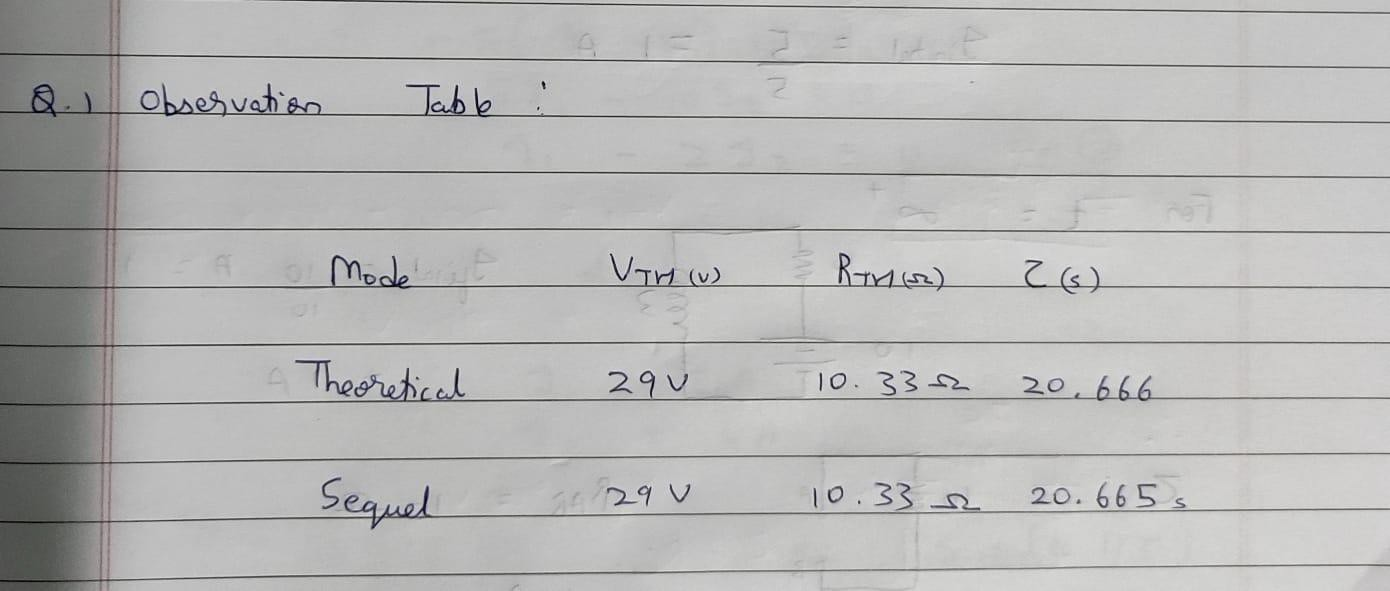 Q.1 Observation Table :
Mode VTH (V) RTH (Ω) τ (s)
Theoretical 29V 10.33 Ω 20.666
Sequel 29 V 10.33 Ω 20.665 s